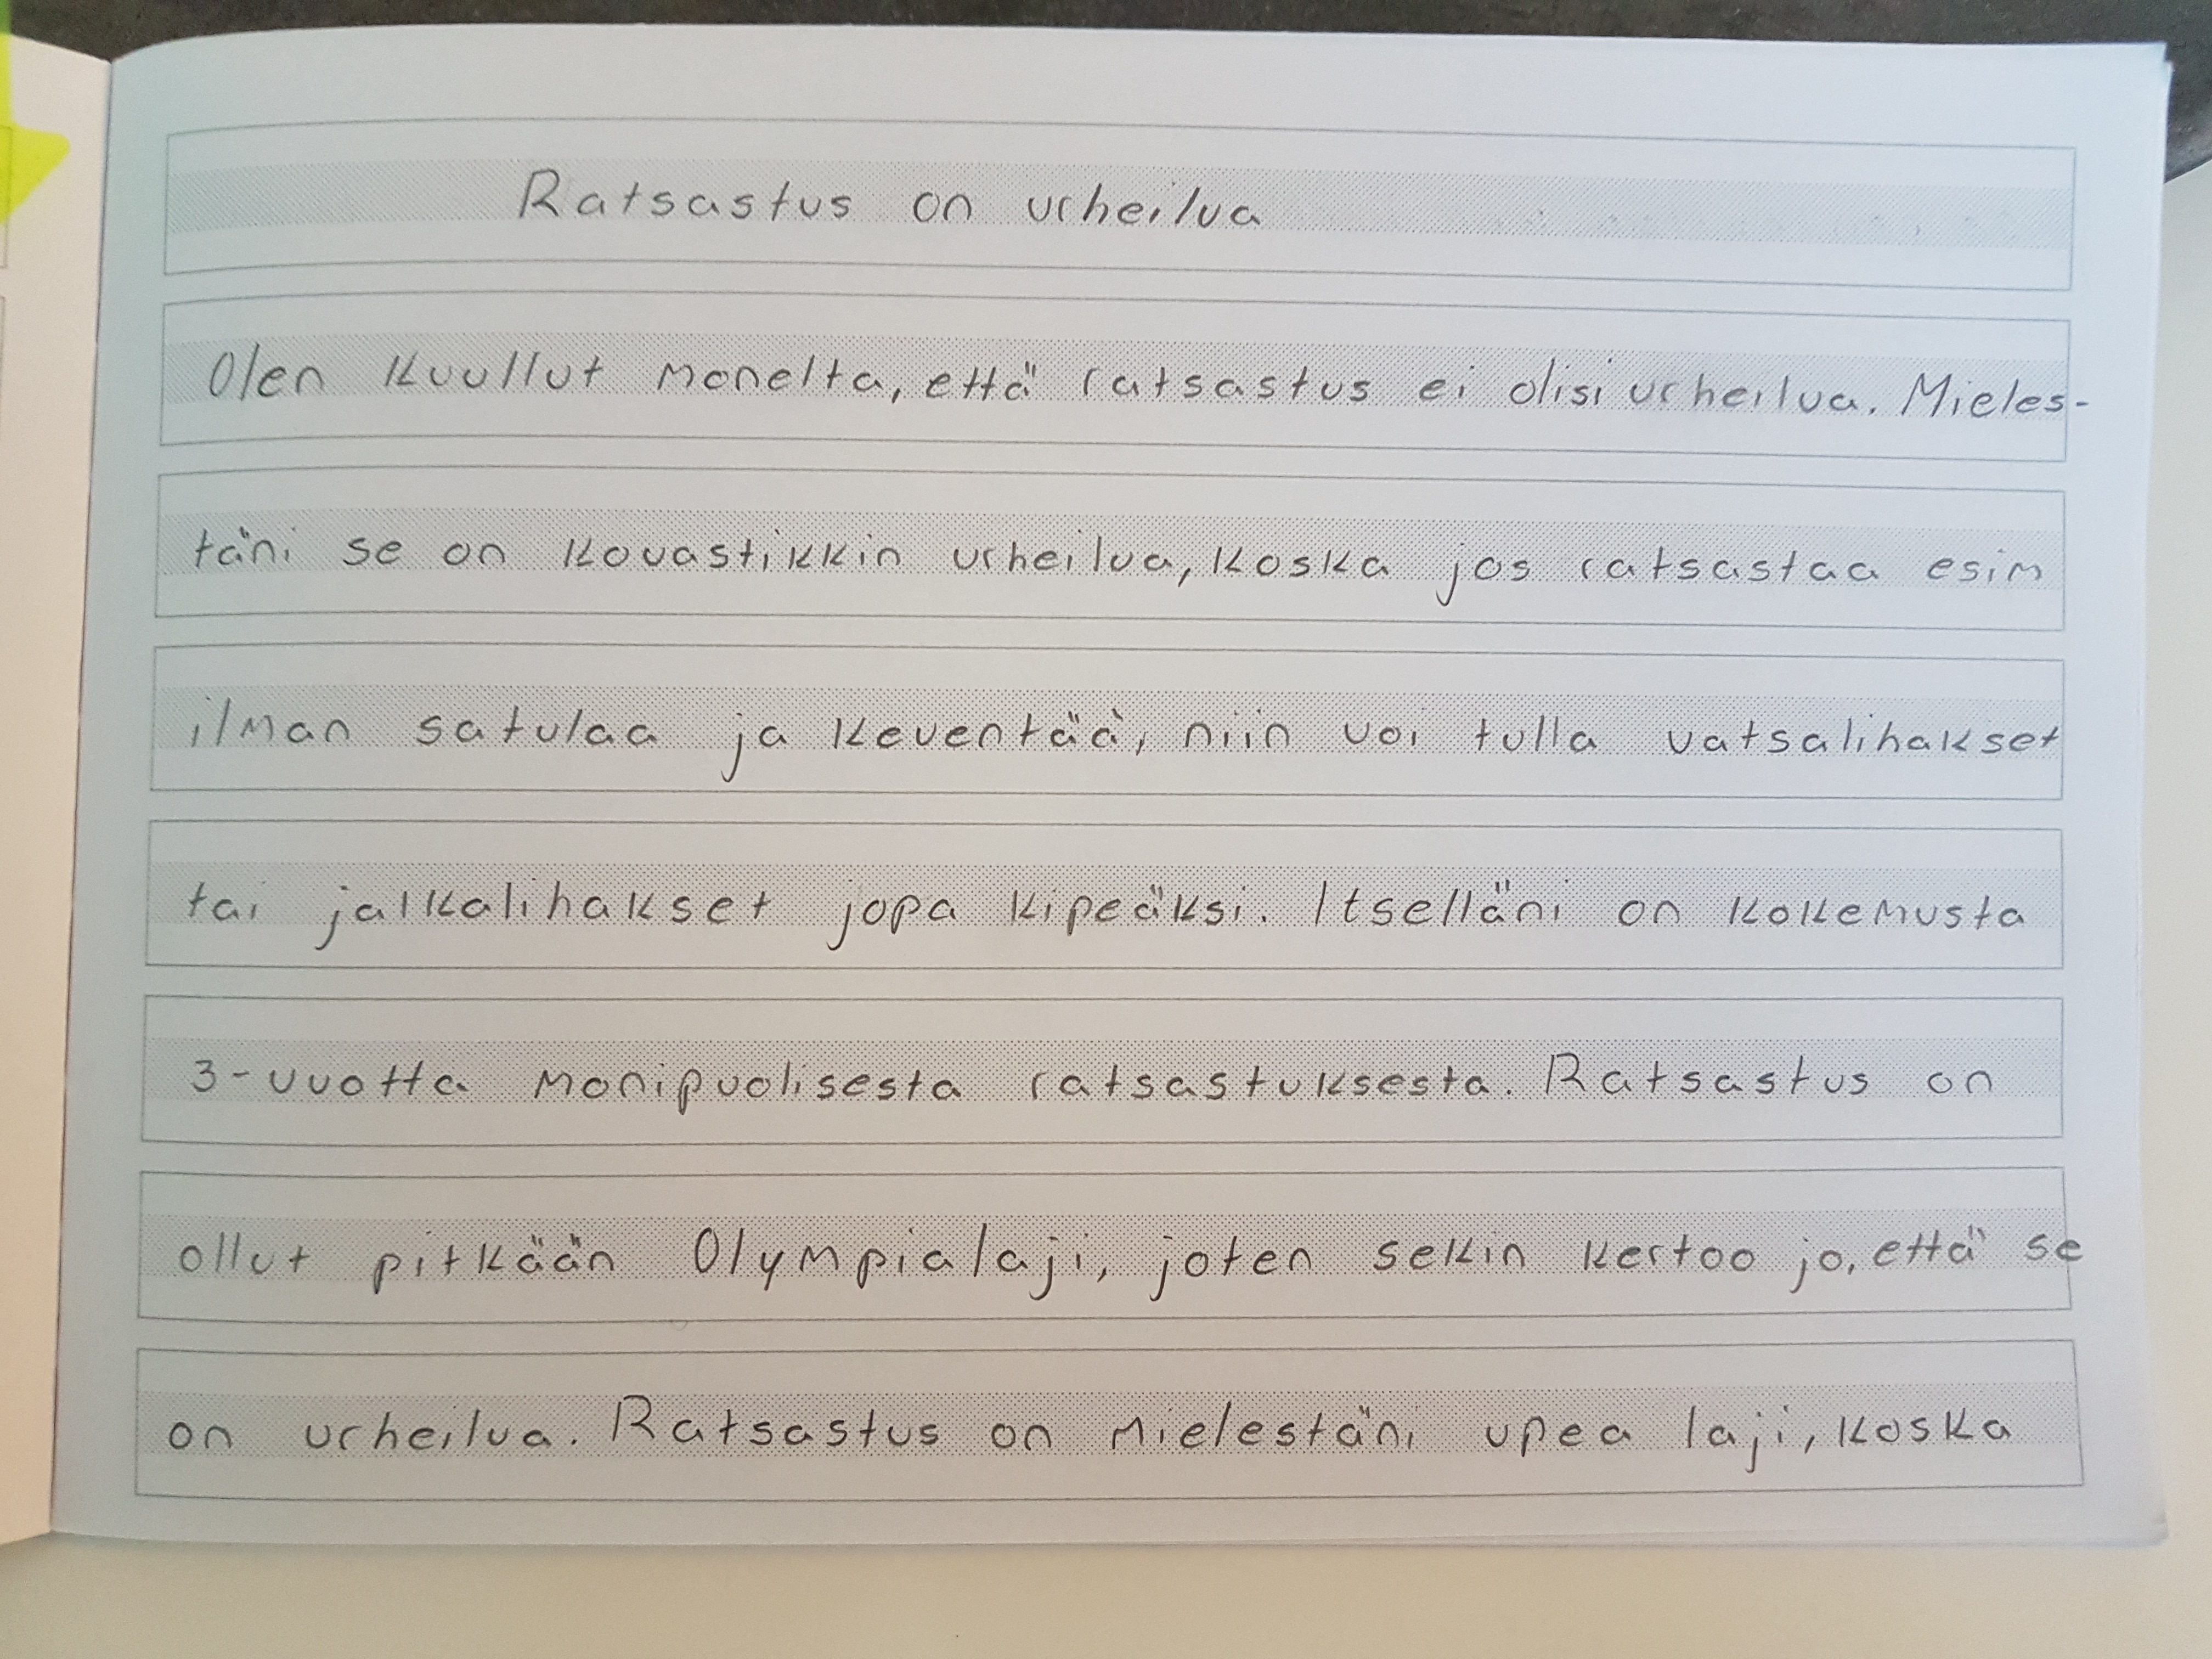 Ratsastus on urheilua
Olen kuullut monelta, että ratsastus ei olisi urheilua. Mieles-
täni se on kovastikkin urheilua, koska jos ratsastaa esim
ilman satulaa ja keventää, niin voi tulla vatsalihakset
tai jalkalihakset jopa kipeäksi. Itselläni on kokemusta
3-vuotta monipuolisesta ratsastuksesta. Ratsastus on
ollut pitkään Olympialaji, joten sekin kertoo jo, että se
on urheilua. Ratsastus on mielestäni upea laji, koska